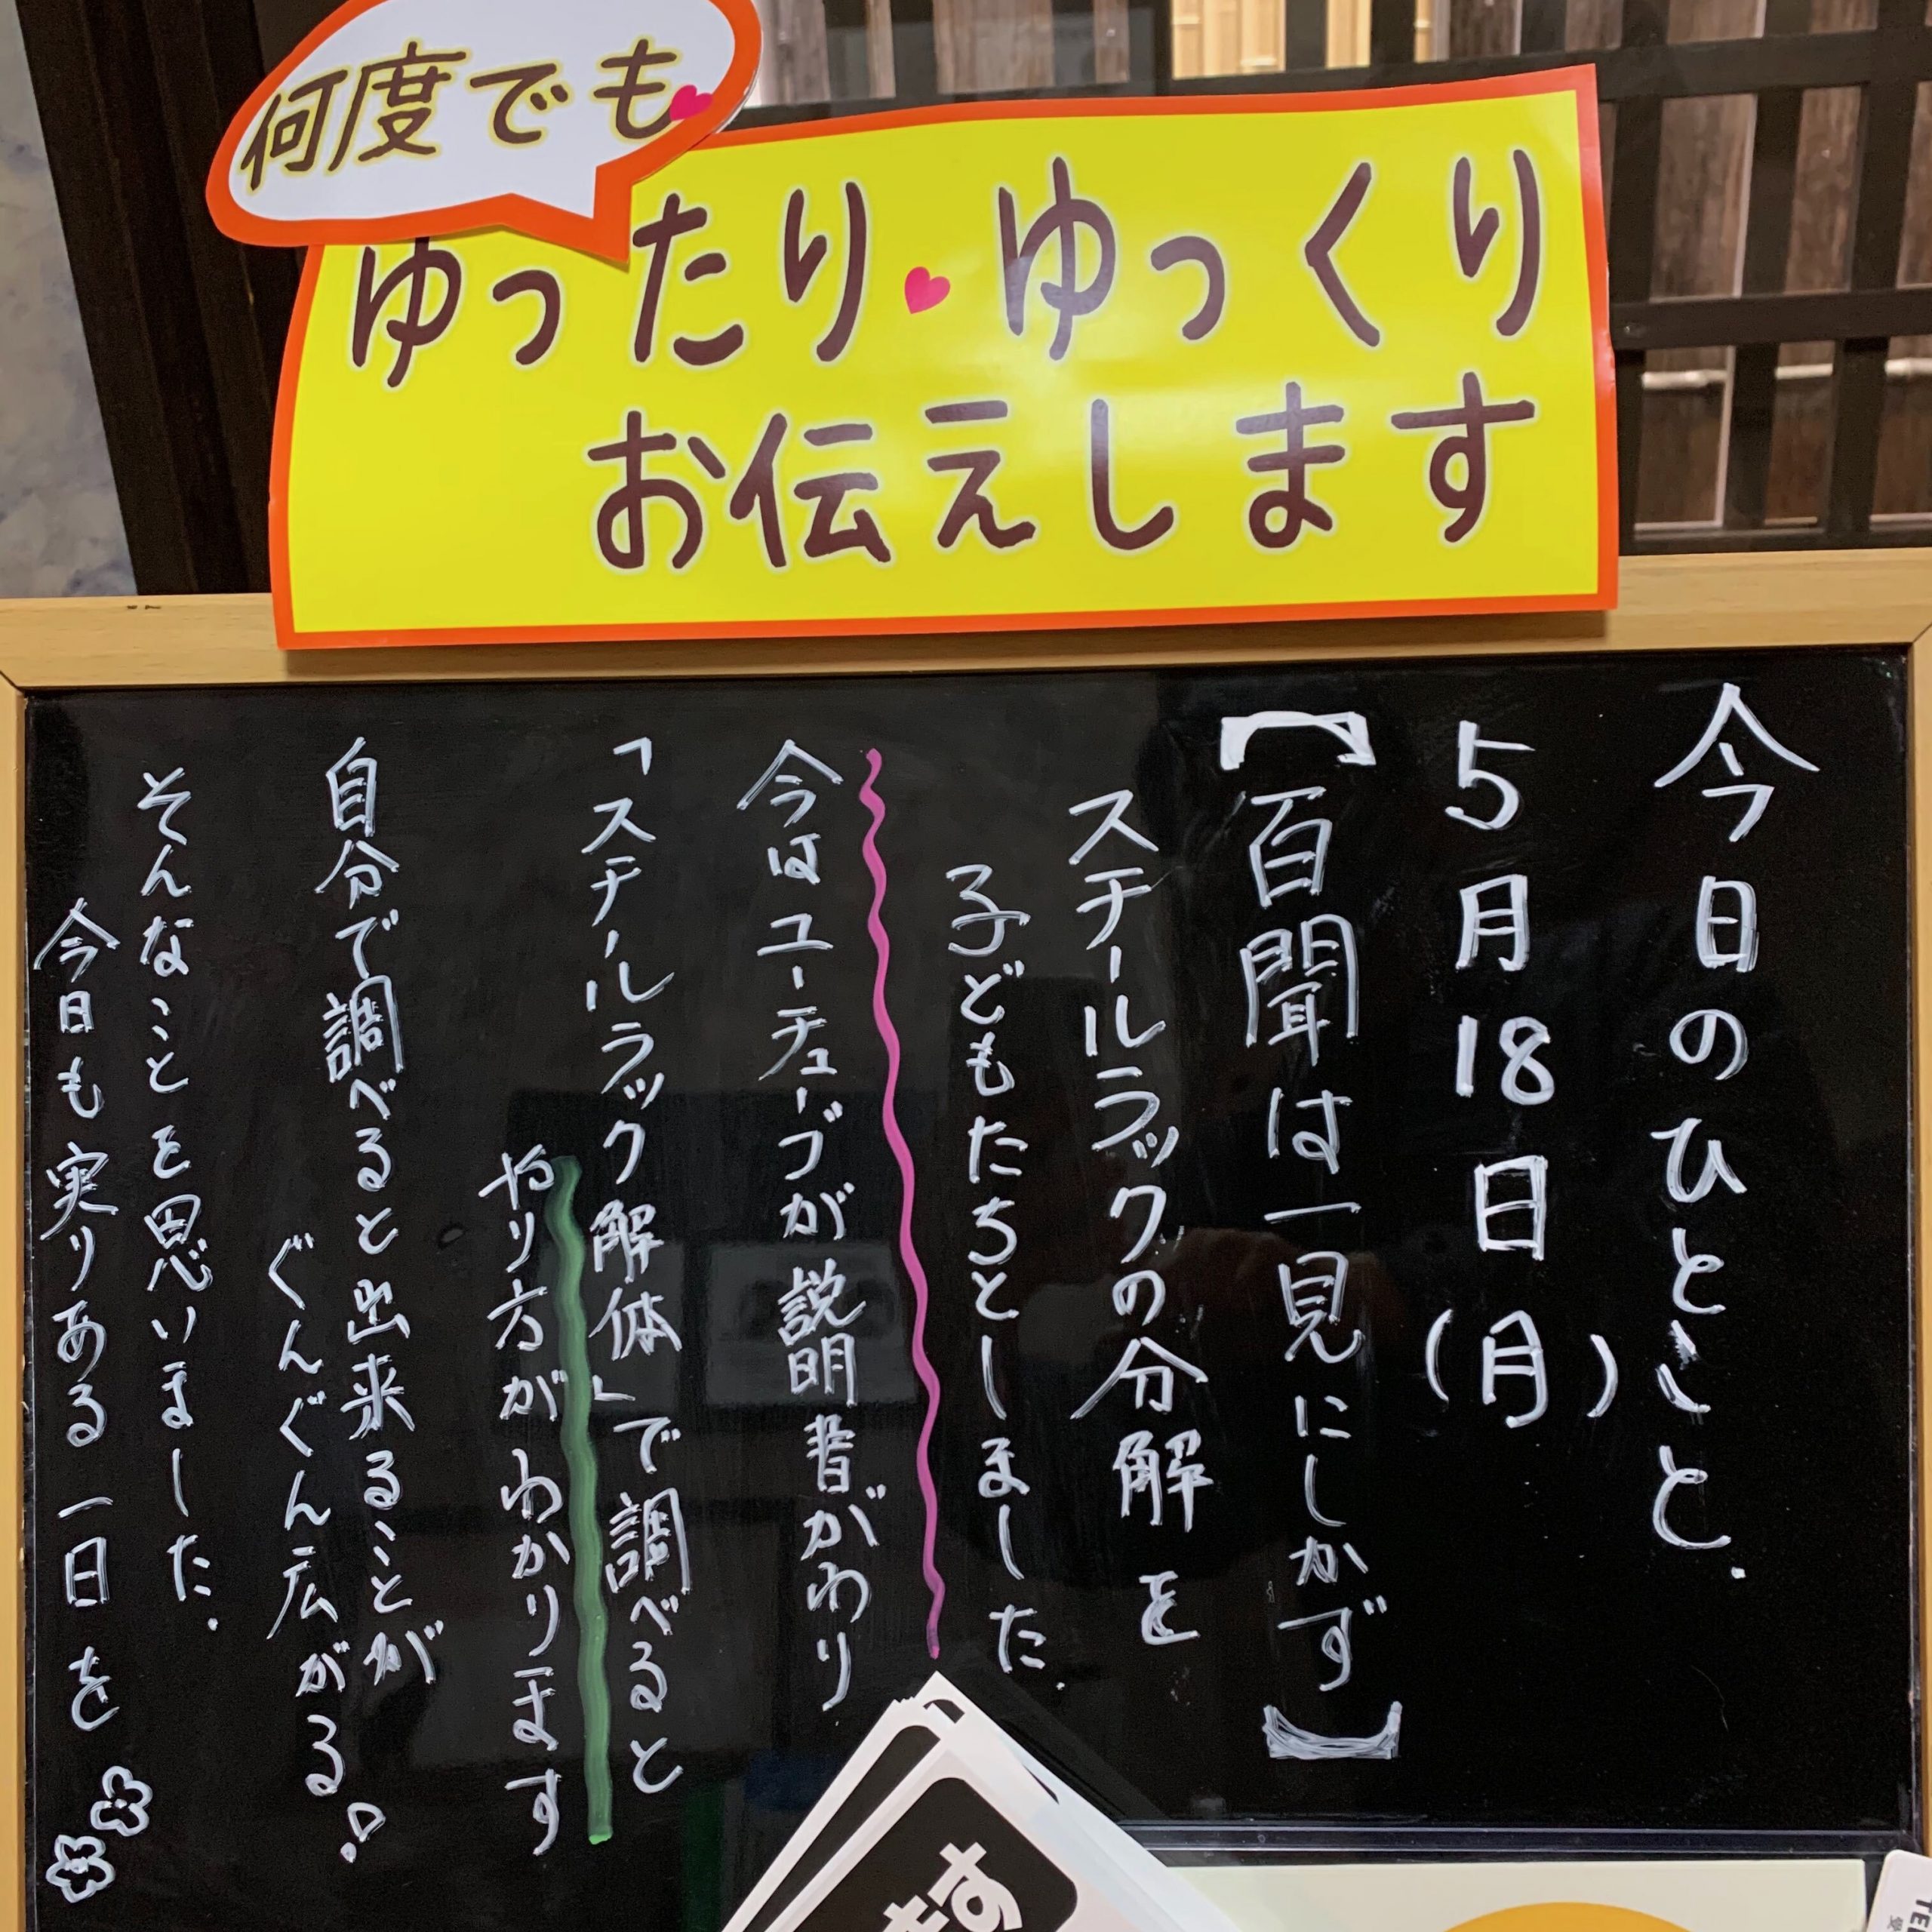 何度でも
ゆったり♥ゆっくり
お伝えします
今日のひとこと.
5月18日(月)
【百聞は一見にしかず】
スチールラックの分解を
子どもたちとしました.
今はユーチューブが説明書がわり
「スチールラック解体」で調べると
やり方がわかります
自分で調べると出来ることが
ぐんぐん広がる!
そんなことを思いました.
今日も実りある一日を
ます